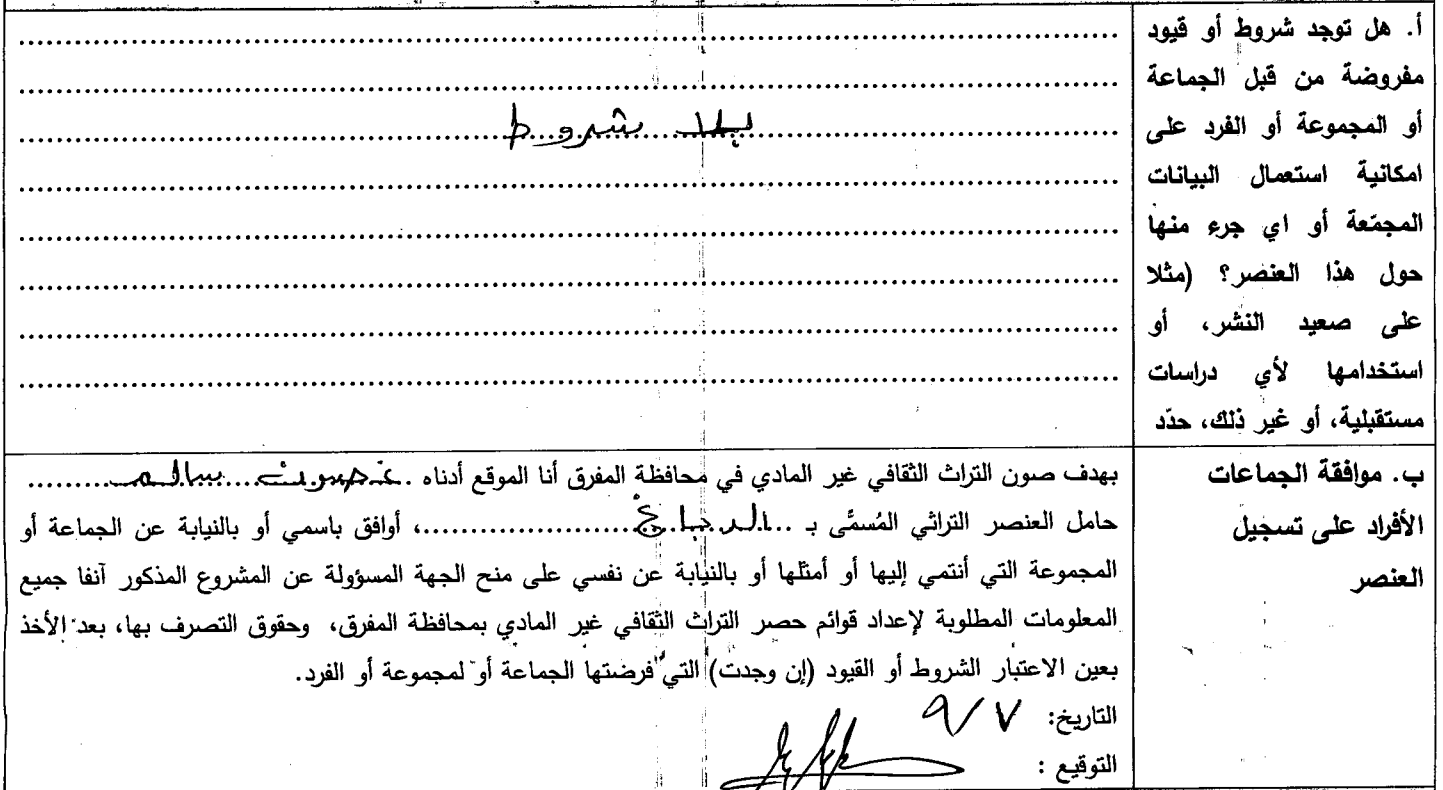 أ. هل توجد شروط أو قيود
مفروضة من قبل الجماعة
أو المجموعة أو الفرد على
امكانية استعمال البيانات
المجمّعة أو اي جرء منها
حول هذا العنصر؟ (مثلا
على صعيد النشر، أو
استخدامها لأي دراسات
مستقبلية، أو غير ذلك، حدّد
بلا شروط
ب. موافقة الجماعات
الأفراد على تسجيل
العنصر
بهدف صون التراث الثقافي غير المادي في محافظة المفرق أنا الموقع أدناه ... سالم ...
حامل العنصر التراثي المُسمَّى بـ ...الدباغ...، أوافق باسمي أو بالنيابة عن الجماعة أو
المجموعة التي أنتمي إليها أو أمثلها أو بالنيابة عن نفسي على منح الجهة المسؤولة عن المشروع المذكور آنفا جميع
المعلومات المطلوبة لإعداد قوائم حصر التراث الثقافي غير المادي بمحافظة المفرق، وحقوق التصرف بها، بعد الأخذ
بعين الاعتبار الشروط أو القيود (إن وجدت) التي فرضتها الجماعة أو لمجموعة أو الفرد.
التاريخ: ٩/٧
التوقيع :